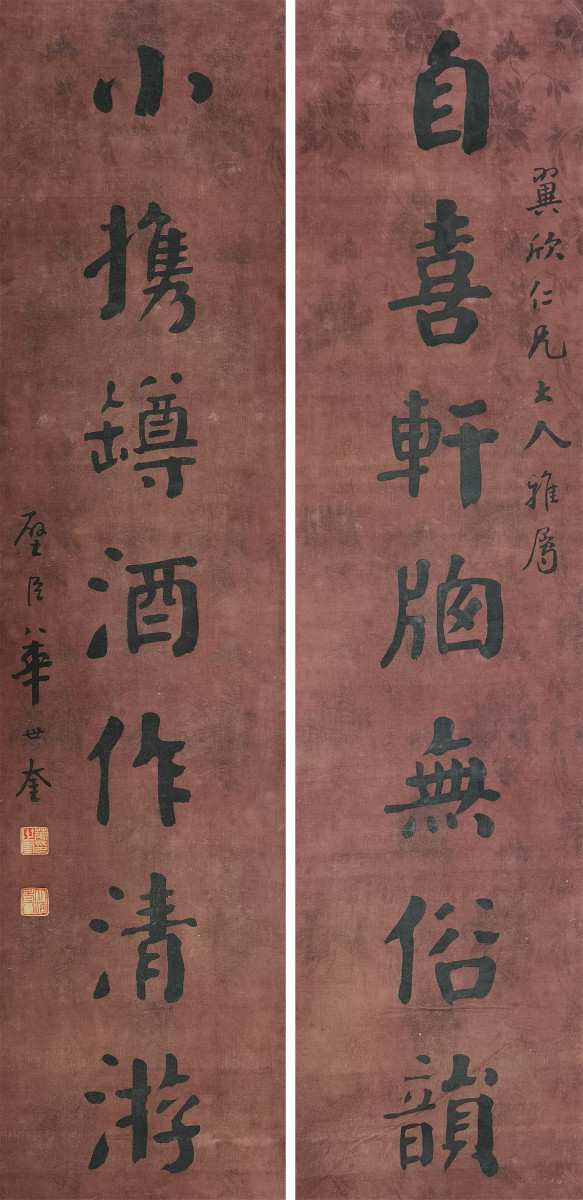 翼欣仁兄大人雅屬
自喜軒牕無俗韻
小携罇酒作清游
壁臣華世奎